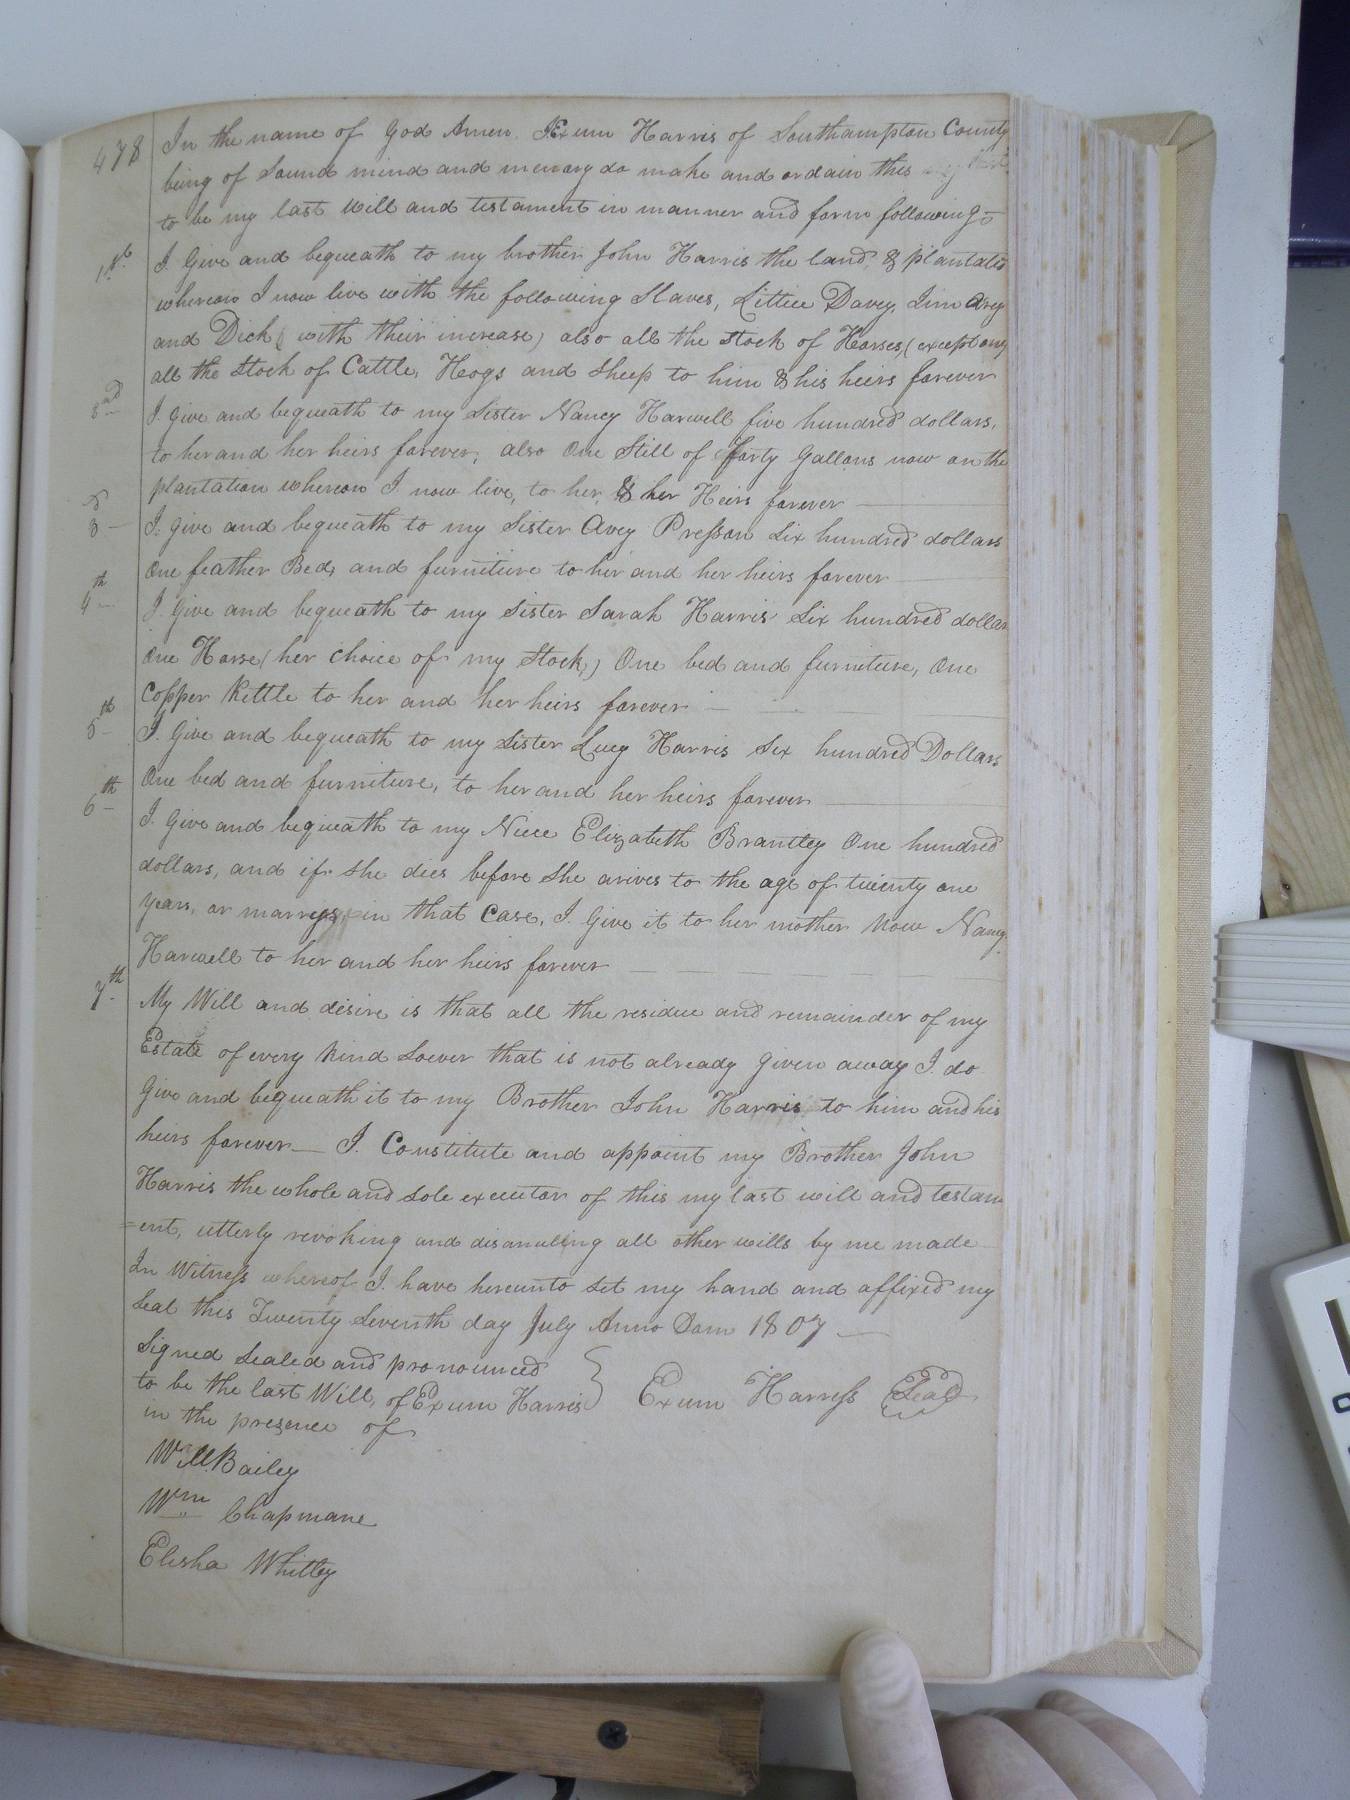 478
In the name of God Amen. I Exum Harris of Southampton County
being of Sound mind and memory do make and ordain this
to be my last Will and testament in manner and form following
1st I Give and bequeath to my brother John Harris the land & plantation
whereon I now live with the following Slaves, Littice Davey, Jim Avey
and Dick (with their increase) also all the Stock of Horses, (except one)
all the Stock of Cattle, Hogs and Sheep to him & his heirs forever
2nd I Give and bequeath to my Sister Nancy Harwell five hundred dollars,
to her and her heirs forever, also One Still of forty Gallons now on the
plantation whereon I now live, to her & her Heirs forever
3 I give and bequeath to my Sister Avey Presson Six hundred dollars
One feather Bed, and furniture to her and her heirs forever
4th I Give and bequeath to my Sister Sarah Harris Six hundred dollars
One Horse (her choice of my Stock,) One bed and furniture, One
Copper Kettle to her and her heirs forever
5th I Give and bequeath to my Sister Lucy Harris Six hundred Dollars
One bed and furniture, to her and her heirs forever
6th I Give and bequeath to my Niece Elizabeth Brantley One hundred
dollars, and if She dies before She arives to the age of twenty one
years, or marrys, in that Case, I Give it to her mother Now Nancy
Harwell to her and her heirs forever
7th My Will and desire is that all the residue and remainder of my
Estate of every Kind Soever that is not already Given away I do
Give and bequeath it to my Brother John Harris to him and his
heirs forever — I Constitute and appoint my Brother John
Harris the whole and Sole executor of this my last will and testam
=ent, utterly revoking and disanuling all other wills by me made
In Witness whereof I have hereunto Set my hand and affixed my
Seal this Twenty Seventh day July Anno Dom 1807 —
Signed Sealed and pronounced
to be the last Will, of Exum Harris } Exum Harress Seal
in the presence of
Will. Bailey
Wm Chapmane
Elisha Whitley